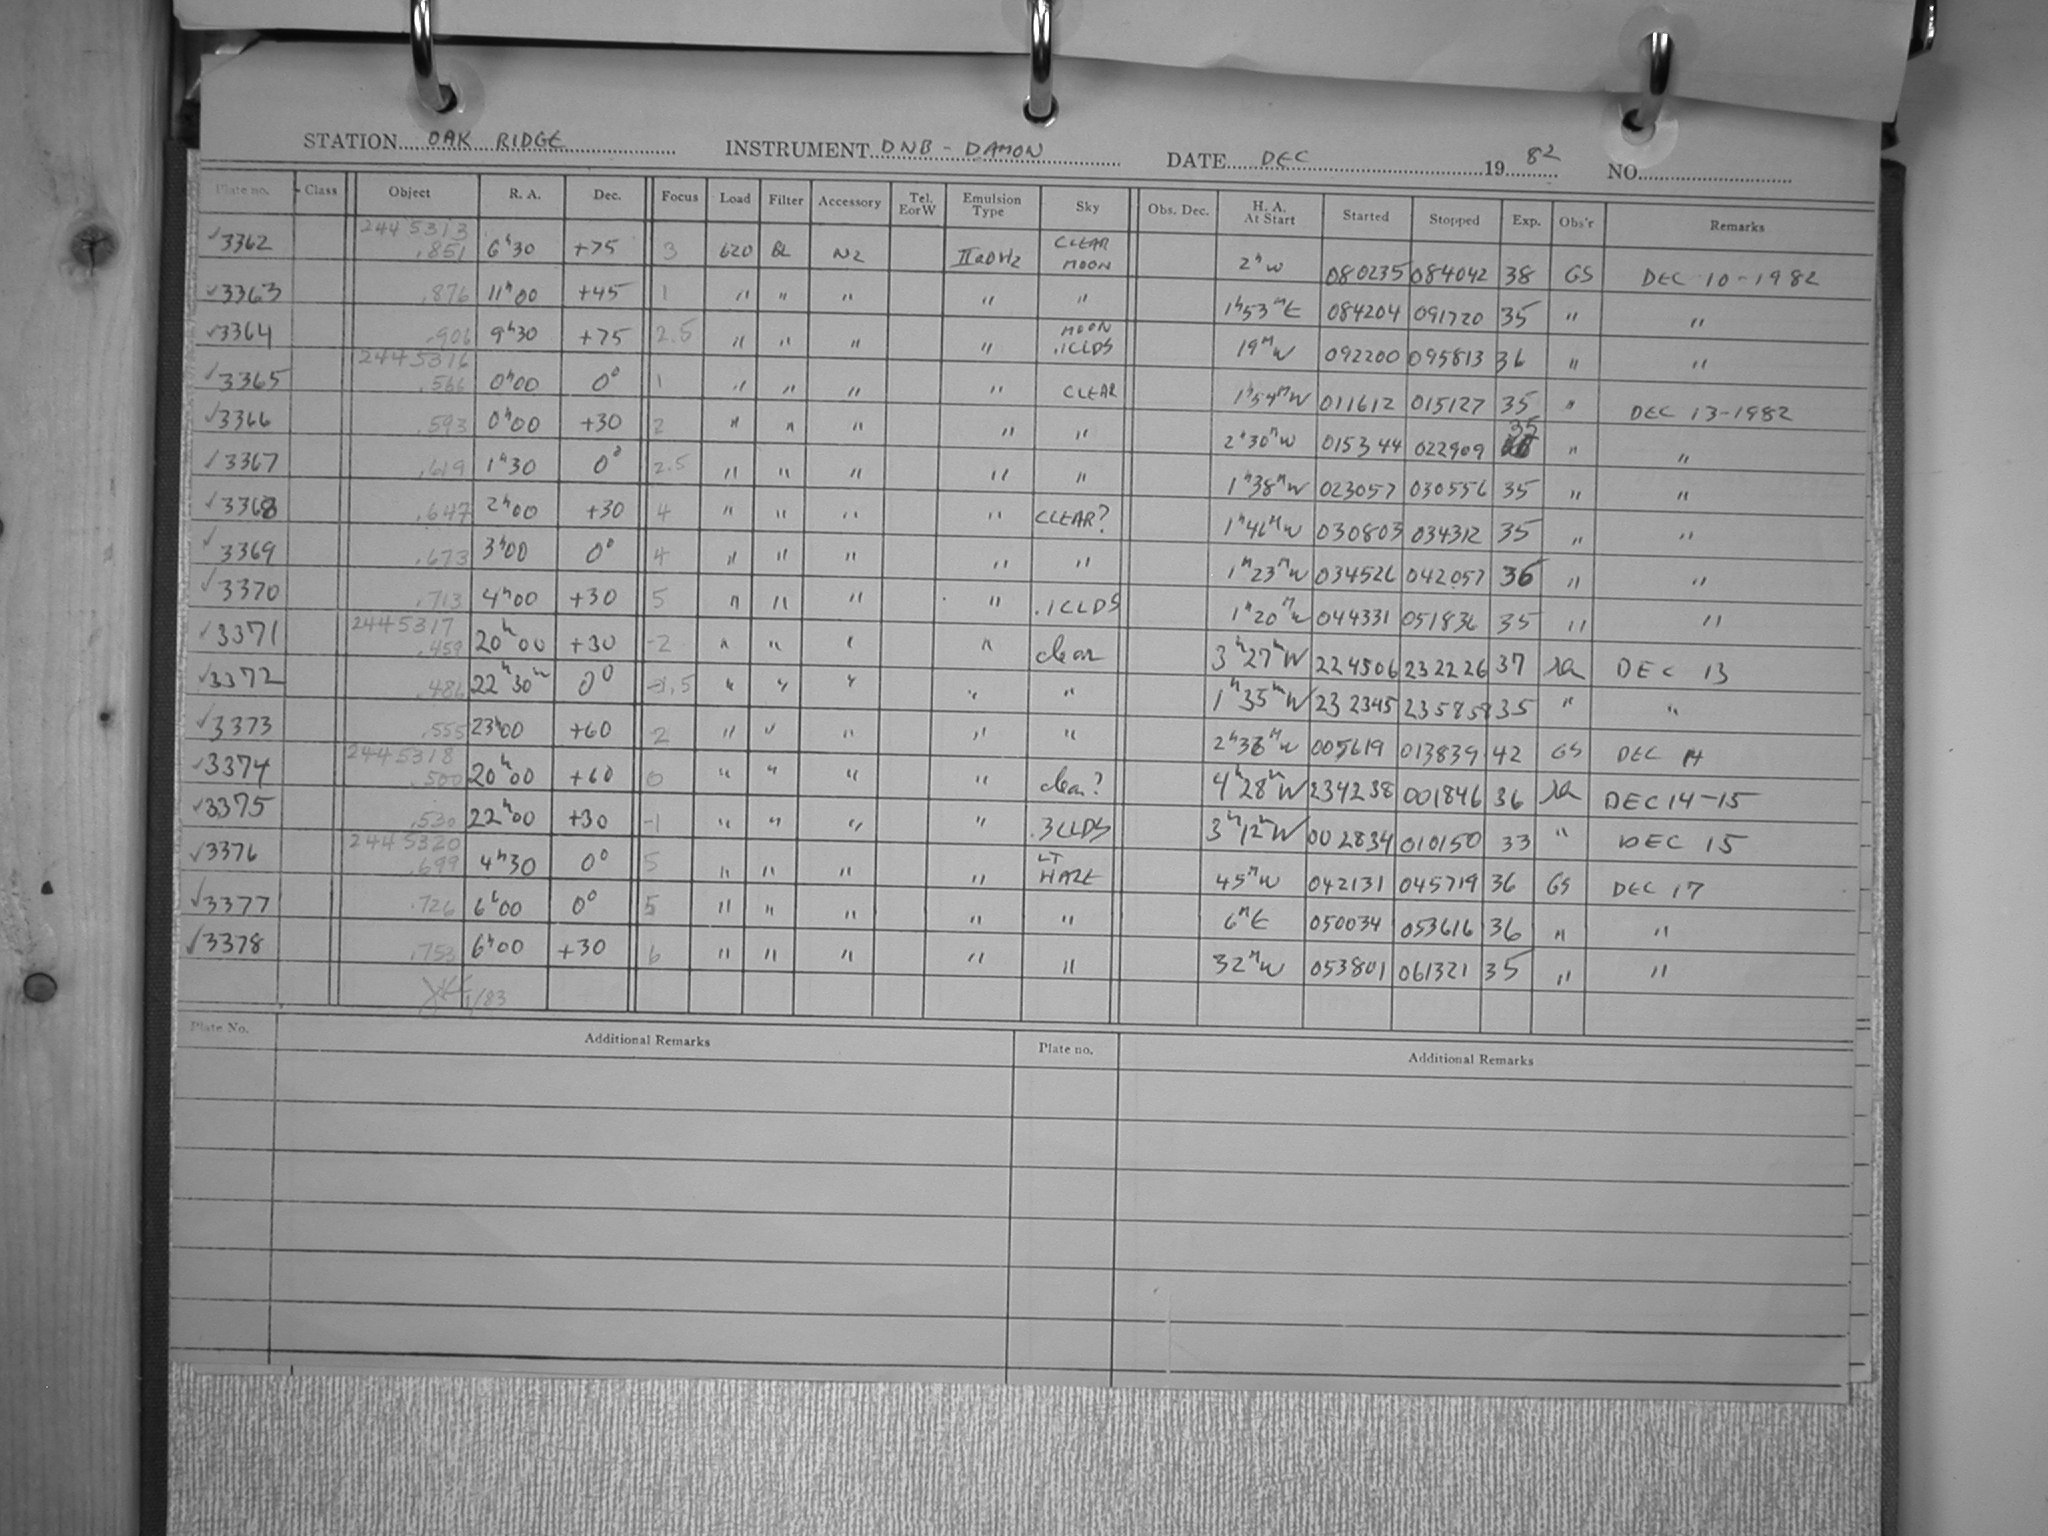 STATION OAK RIDGE INSTRUMENT DNB - DAMON DATE DEC 19 82 NO.
Plate no. Class Object R. A. Dec. Focus Load Filter Accessory Tel. E or W Emulsion Type Sky Obs. Dec. H. A. At Start Started Stopped Exp. Obs'r Remarks
✓3362 2445313 .851 6h30 +75 3 620 BL N2 IIaDH2 CLEAR MOON 2h W 080235 084042 38 GS DEC 10-1982
✓3363 .876 11h00 +45 1 " " " " " 1h53mE 084204 091720 35 " "
✓3364 .906 9h30 +75 2.5 " " " " MOON .1CLDS 19mW 092200 095813 36 " "
✓3365 2445316 .566 0h00 0° 1 " " " " CLEAR 1h54mW 011612 015127 35 " DEC 13-1982
✓3366 .593 0h00 +30 2 " " " " " 2h30mW 015344 022909 35 " "
✓3367 .619 1h30 0° 2.5 " " " " " 1h38mW 023057 030556 35 " "
✓3368 .647 2h00 +30 4 " " " " CLEAR? 1h46mW 030803 034312 35 " "
✓3369 .673 3h00 0° 4 " " " " " 1h23mW 034526 042057 36 " "
✓3370 .713 4h00 +30 5 " " " " .1CLDS 1h20mW 044331 051836 35 " "
✓3371 2445317 .459 20h00 +30 -2 " " " " clear 3h27mW 224506 232226 37 DEC 13
✓3372 .486 22h30m 0° -1.5 " " " " " 1h35mW 232345 235858 35 " "
✓3373 .555 23h00 +60 2 " " " " " 2h38mW 005619 013839 42 GS DEC 14
✓3374 2445318 .500 20h00 +60 0 " " " " clear? 4h28mW 234238 001846 36 DEC 14-15
✓3375 .530 22h00 +30 -1 " " " " .3CLDS 3h12mW 002834 010150 33 " DEC 15
✓3376 2445320 .699 4h30 0° 5 " " " " LT HAZE 45mW 042131 045719 36 GS DEC 17
✓3377 .726 6h00 0° 5 " " " " " 6mE 050034 053616 36 " "
✓3378 .753 6h00 +30 6 " " " " " 32mW 053801 061321 35 " "
1/83
Plate No. Additional Remarks Plate no. Additional Remarks